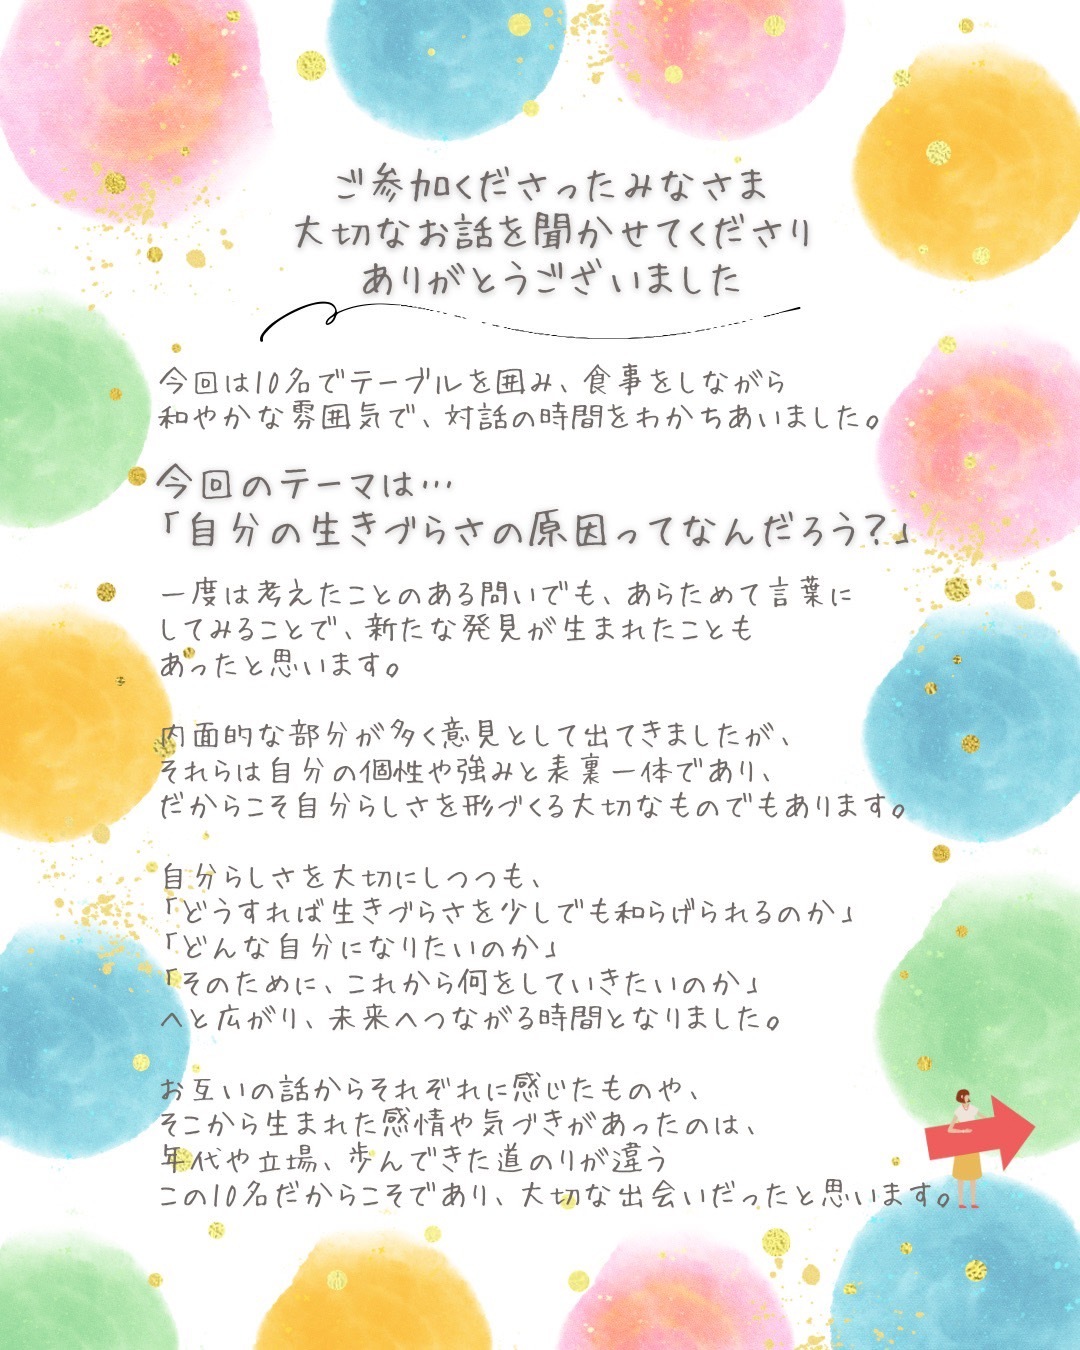 ご参加くださったみなさま
大切なお話を聞かせてくださり
ありがとうございました
今回は10名でテーブルを囲み、食事をしながら
和やかな雰囲気で、対話の時間をわかちあいました。
今回のテーマは…
「自分の生きづらさの原因ってなんだろう?」
一度は考えたことのある問いでも、あらためて言葉に
してみることで、新たな発見が生まれたことも
あったと思います。
内面的な部分が多く意見として出てきましたが、
それらは自分の個性や強みと表裏一体であり、
だからこそ自分らしさを形づくる大切なものでもあります。
自分らしさを大切にしつつも、
「どうすれば生きづらさを少しでも和らげられるのか」
「どんな自分になりたいのか」
「そのために、これから何をしていきたいのか」
へと広がり、未来へつながる時間となりました。
お互いの話からそれぞれに感じたものや、
そこから生まれた感情や気づきがあったのは、
年代や立場、歩んできた道のりが違う
この10名だからこそであり、大切な出会いだったと思います。